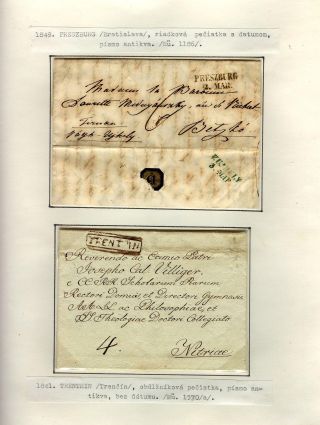 1849. PRESZBURG /Bratislava/, riadková pečiatka s dátumom,
písmo antikva. /Mü. 1186/.
PRESZBURG
2. MAR.
Madame la Baronne
née de
Tirnau
Bitzkó
3. MAR
TRENTSIN
Reverendo ac Eximio Patri
Josepho Cal. Villiger,
e Scholarum Piarum
Rectori Domus, et Directori Gymnasii
AA. LL. ac Philosophiae, et
SS. Theologiae Doctori Collegiato
4.
Nitriae
1841. TRENTSIN /Trenčín/, obdĺžniková pečiatka, písmo an-
tikva, bez dátumu. /Mü. 1570/a/.